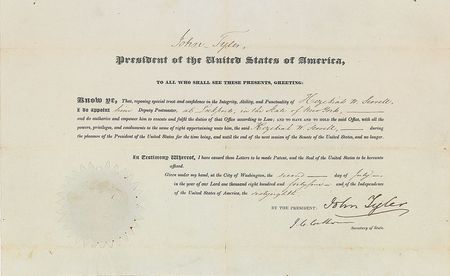 John Tyler,
President of the United States of America,
TO ALL WHO SHALL SEE THESE PRESENTS, GREETING:
Know ye, That, reposing special trust and confidence in the Integrity, Ability, and Punctuality of Hezekiah W. Scovell,
I do appoint him Deputy Postmaster, at Lockport, in the State of New York,
and do authorize and empower him to execute and fulfil the duties of that Office according to Law; AND TO HAVE AND TO HOLD the said Office, with all the
powers, privileges, and emoluments to the same of right appertaining unto him, the said Hezekiah W. Scovell, during
the pleasure of the President of the United States for the time being, and until the end of the next session of the Senate of the United States, and no longer.
In Testimony Whereof, I have caused these Letters to be made Patent, and the Seal of the United States to be hereunto
affixed.
Given under my hand, at the City of Washington, the second day of July
in the year of our Lord one thousand eight hundred and forty four and of the Independence
of the United States of America, the sixty eighth
BY THE PRESIDENT: John Tyler
J. C. Calhoun
Secretary of State.